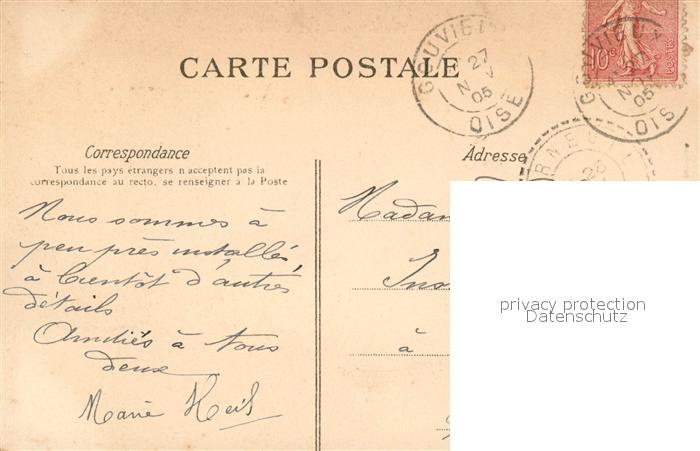 GOUVIEUX
27
NOV
05
OISE
CARTE POSTALE
10c
GOUVIEUX
27
NOV
05
OIS
RNEUIL
28
Correspondance
Adresse
Tous les pays étrangers n acceptent pas la
correspondance au recto, se renseigner à la Poste
Nous sommes à
peu près installés
à bientôt d'autres
détails
Amitiés à tous
deux
Marie
Madam
Ins
à
privacy protection
Datenschutz